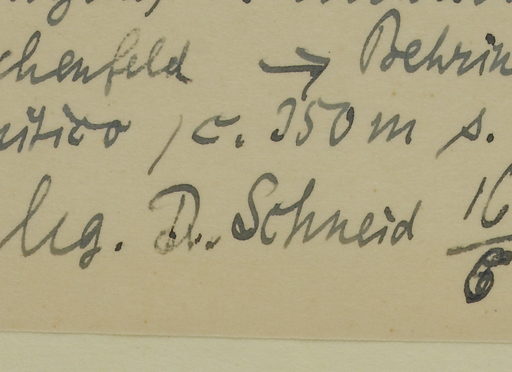 chenfeld → Behrin
nitico, c. 350 m s.
leg. D. Schneid 16/6